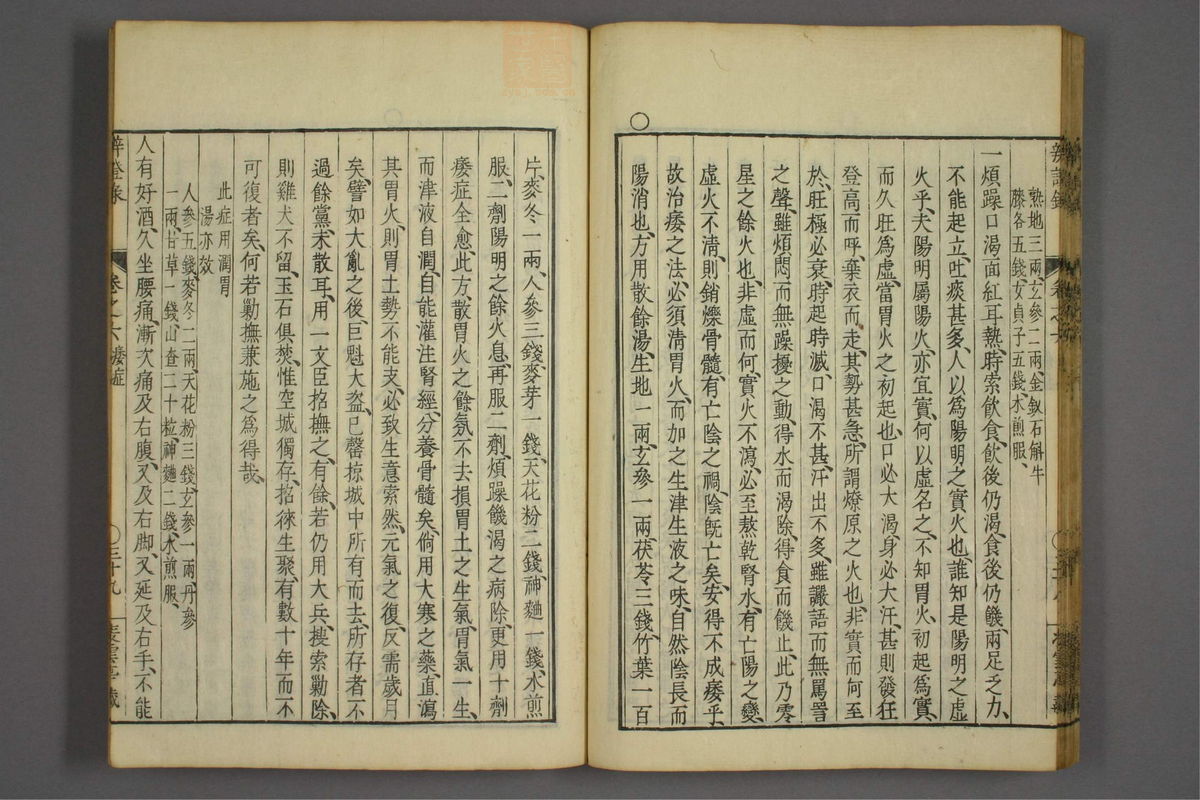 熟地三兩、玄參二兩、金釵石斛牛
膝各五錢、女貞子五錢、水煎服、
一煩躁口渴、面紅耳熱、時索飲食、飲後仍渴、食後仍饑、兩足乏力、
不能起立、吐痰甚多、人以爲陽明之實火也、誰知是陽明之虛
火乎、夫陽明屬陽火、亦宜實、何以虛名之、不知胃火、初起爲實、
而久旺爲虛、當胃火之初起也、口必大渴、身必大汗、甚則發狂
登高而呼、棄衣而走、其勢甚急、所謂燎原之火也、非實而何、至
於、旺極必衰、時起時滅、口渴不甚、汗出不多、雖讝語而無罵詈
之聲、雖煩悶而無躁擾之動、得水而渴除、得食而饑止、此乃零
星之餘火也、非虛而何、實火不瀉、必至熬乾腎水、有亡陽之變、
虛火不清、則銷爍骨髓、有亡陰之禍、陰旣亡矣、安得不成痿乎、
故治痿之法、必須清胃火、而加之生津生液之味、自然陰長而
陽消也、方用散餘湯、生地一兩、玄參一兩、茯苓三錢、竹葉一百
片、麥冬一兩、人參三錢、麥芽一錢、天花粉二錢、神麯一錢、水煎
服、二劑陽明之餘火息、再服二劑、煩躁饑渴之病除、更用十劑
痿症全愈、此方、散胃火之餘氛、不去損胃土之生氣、胃氣一生、
而津液自潤、自能灌注腎經、分養骨髓矣、倘用大寒之藥、直瀉
其胃火、則胃土勢不能支、必致生意索然、元氣之復、反需歲月
矣、譬如大亂之後、巨魁大盜、已罄掠城中所有而去、所存者不
過餘黨未散耳、用一文臣招撫之、有餘、若仍用大兵、搜索勦除、
則雞犬不留、玉石俱焚、惟空城獨存、招徠生聚、有數十年而不
可復者矣、何若勦撫兼施之爲得哉、
此症用潤胃
湯亦效
人參五錢、麥冬二兩、天花粉三錢、玄參一兩、丹參
一兩、甘草一錢、山查二十粒、神麯二錢、水煎服、
人有好酒、久坐腰痛、漸次痛及右腹、又及右脚、又延及右手、不能
辨證录
卷之六 痿症
三十九